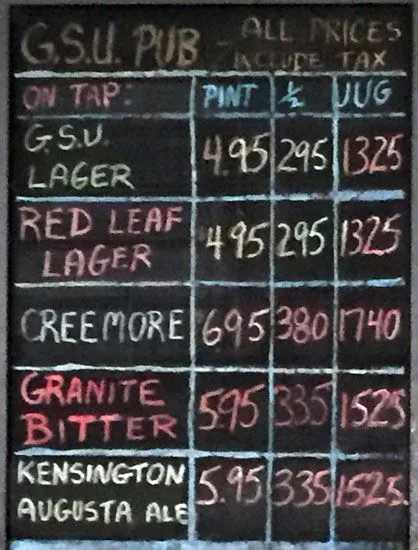 G.S.U. PUB - ALL PRICES
INCLUDE TAX
ON TAP: PINT ½ JUG
G.S.U.
LAGER 4.95 295 1325
RED LEAF
LAGER 4.95 295 1325
CREEMORE 695 380 1740
GRANITE
BITTER 595 335 1525
KENSINGTON
AUGUSTA ALE 5.95 335 1525